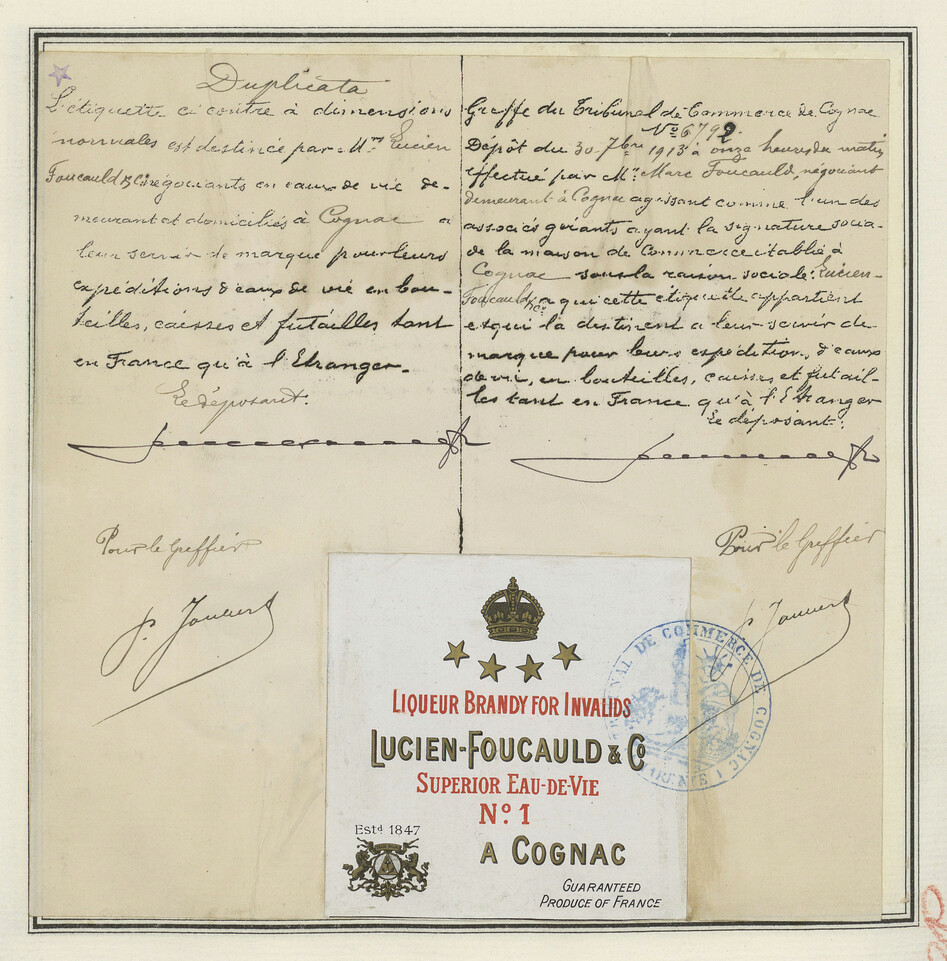 Duplicata
L'étiquette ci contre à dimensions
normales est destinée par M.rs Lucien
Foucauld & Cie négociants en eaux de vie de-
meurant et domiciliés à Cognac a
leur servir de marque pour leurs
expéditions d'eaux de vie en bou-
teilles, caisses et futailles tant
en France qu'à l'Etranger.
Le déposant.
Pour le Greffier
Greffe du Tribunal de Commerce de Cognac
No 6792
Dépôt du 30 7bre 1913 à onze heures du matin
effectué par Mr. Marc Foucauld, négociant
demeurant à Cognac agissant comme l'un des
associés gérants ayant la signature socia-
de la maison de Commerce établie à
Cognac sous la raison sociale: Lucien-
Foucauld & Co a qui cette étiquette appartient
et qui la destinent a leur servir de
marque pour leurs expédition, d'eaux
de vie, en bouteilles, caisses et futail-
les tant en France qu'à l'Etranger
Le déposant.
Pour le Greffier
LIQUEUR BRANDY FOR INVALIDS
LUCIEN-FOUCAULD & Co
SUPERIOR EAU-DE-VIE
No. 1
Estd 1847
A COGNAC
GUARANTEED
PRODUCE OF FRANCE
TRIBUNAL DE COMMERCE DE COGNAC